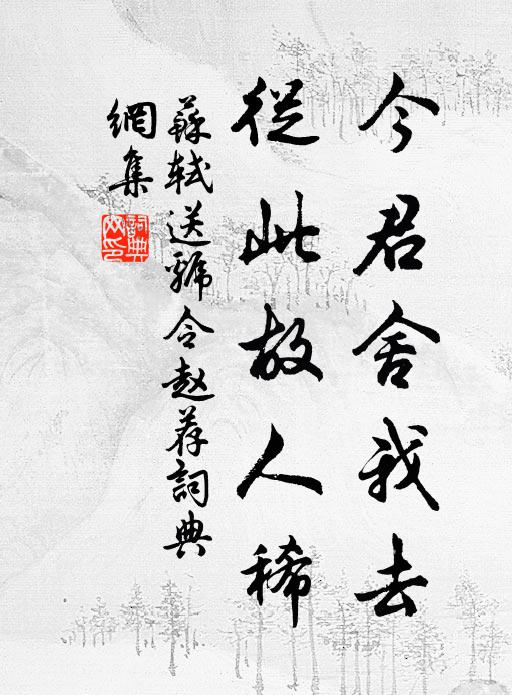 今君舍我去
從此故人稀
蘇軾送虢令趙荐詞典
網集
詞典
网印